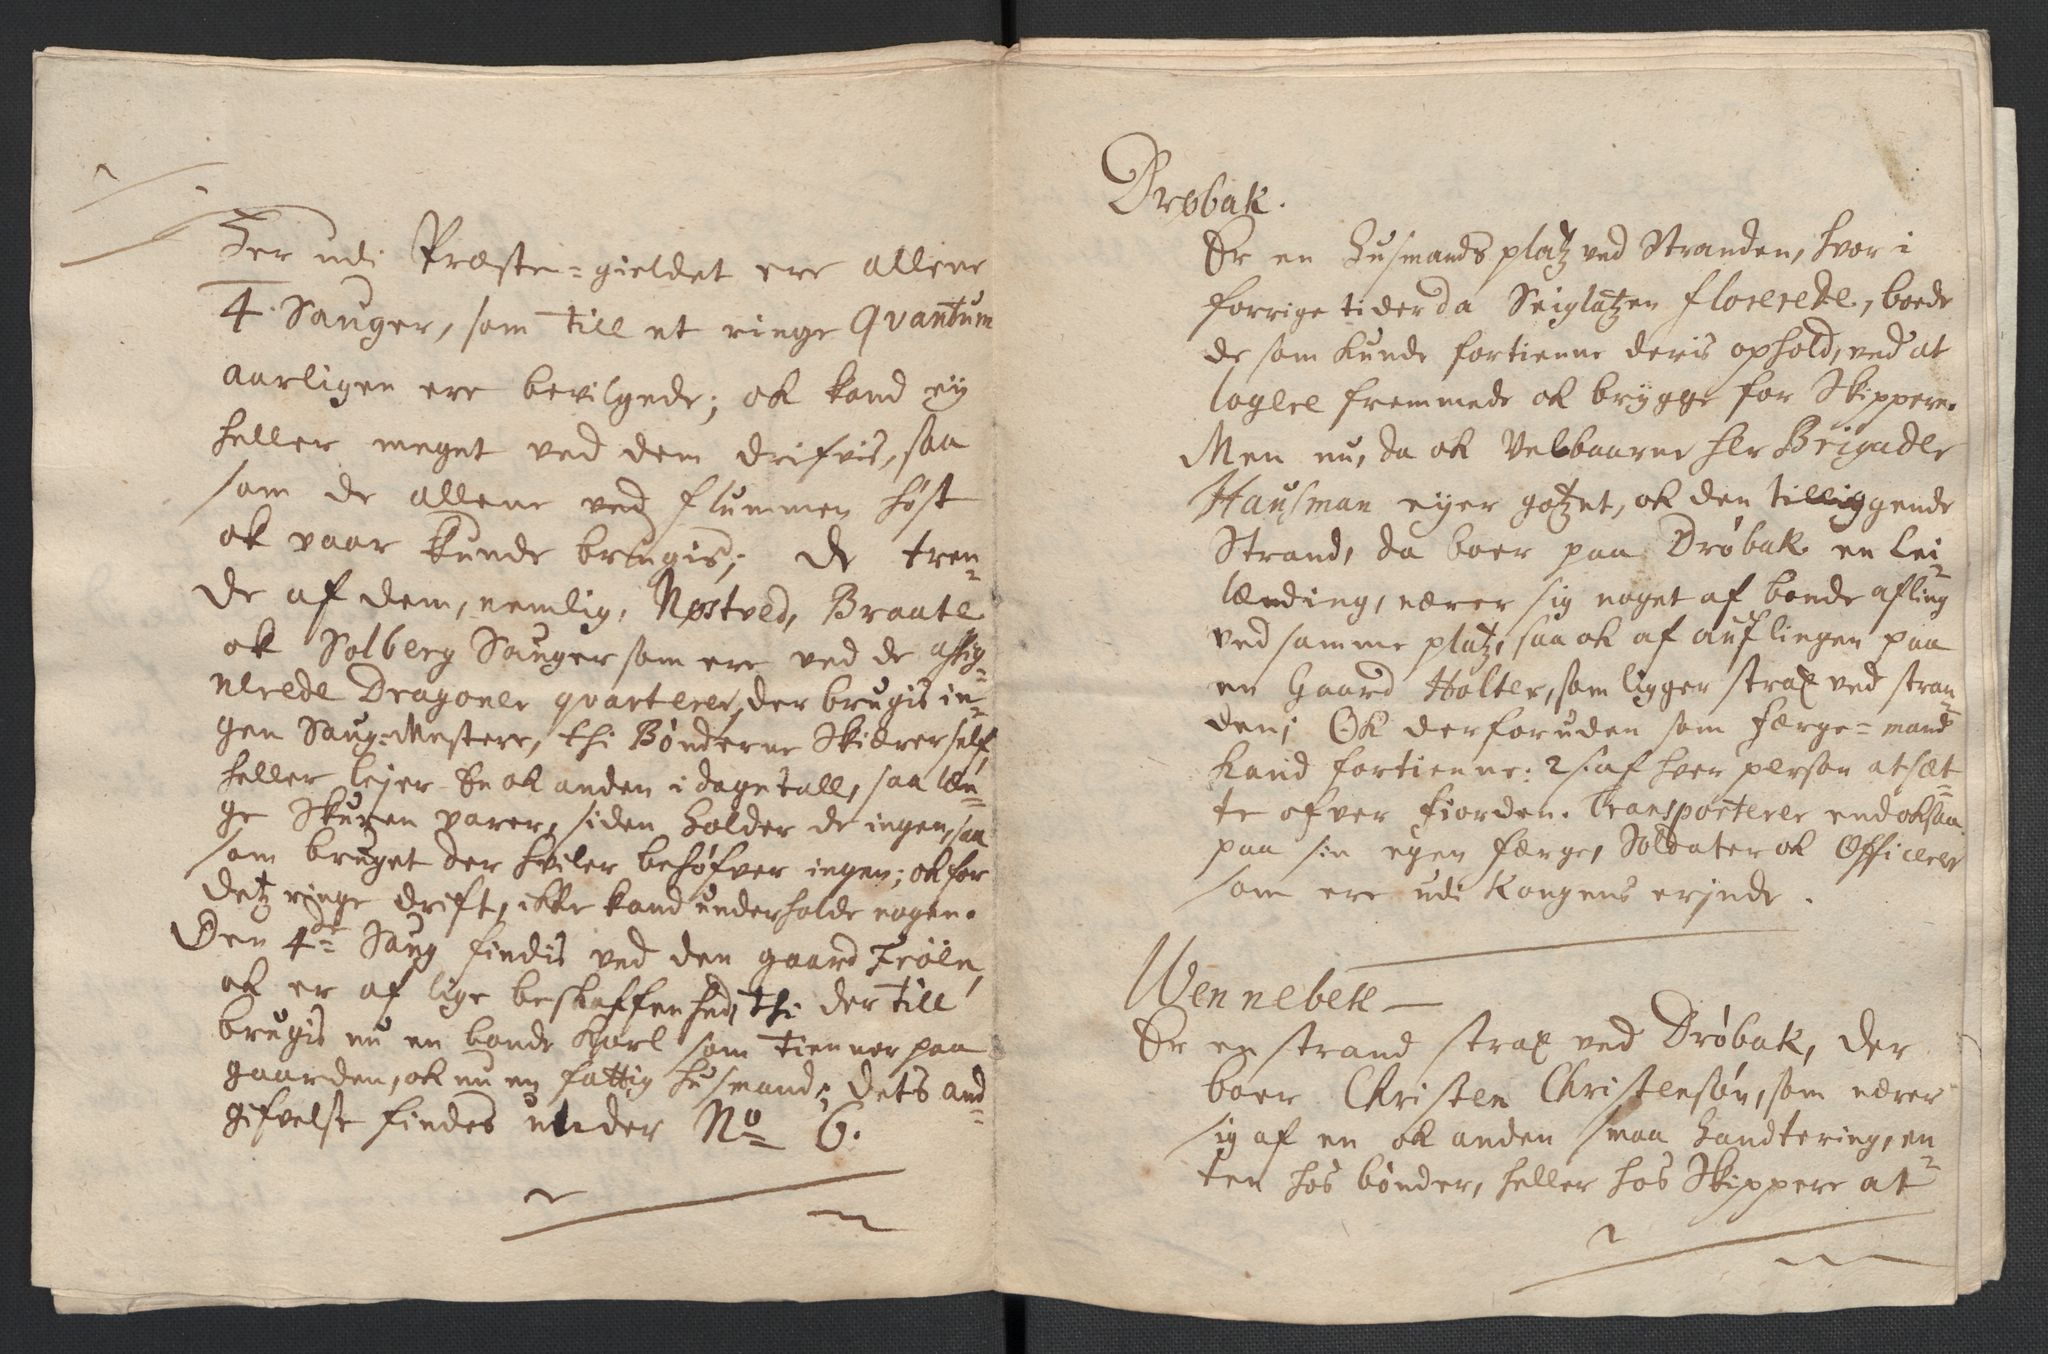 Her udi Præste-gieldet ere allene
4. Sauger, som till et ringe Qvantum
aarligen ere bevilgede; ok kand ej
heller meget ved dem drifvis, saa
som de allene ved flummen høst
ok vaar kunde brugis; de tren-
de af dem, nemlig, Nøstved, Braate
ok Solberg Sauger som ere ved de assig-
nerede Dragoner qvarterer, der brugis in-
gen Saug-Mestere, thi Bønderne Skiærer self,
heller lejer En ok anden i dagetall, saa læn-
ge Skuren varer, siden holder de ingen, saa
som bruget der hviler behøfver ingen; ok for
detz ringe drift, ikke kand underholde nogen.
Den 4de Saug findis ved den gaard Froën,
ok er af lige beskaffenhed, thi der till
brugis nu en bonde Karl som tienner paa
gaarden, ok nu en fattig husmand; dets and-
gifvelse findes under No 6.
Drøbak.
Er en Husmands platz ved Stranden, hvor i
forrige tider da Seiglatzen florerede, boede
de som kunde fortienne deris ophold, ved at
logere fremmede ok brygge for Skippere.
Men nu, da ok Velbaarne Hr Brigader
Hausman ejer gotzet, ok den tilliggende
Strand, da boer paa Drøbak en lei-
lænding, nærer sig noget af bonde afling
ved samme platz, saa ok af auflingen paa
en Gaard Holter, som ligger strax ved stran-
den; Ok derforuden som Færge-mand
kand fortienne: 2 s: af hver person at sæt-
te ofver fiorden. Transporterer end oksaa
paa sin egen færge, Soldater ok Officerer
som ere udi Kongens erinde.
Wennebek
Er en strand strax ved Drøbak, der
boer Christen Christensøn, som nærer
sig af en ok anden smaa Handtering, en-
ten hos bønder, heller hos Skippere at